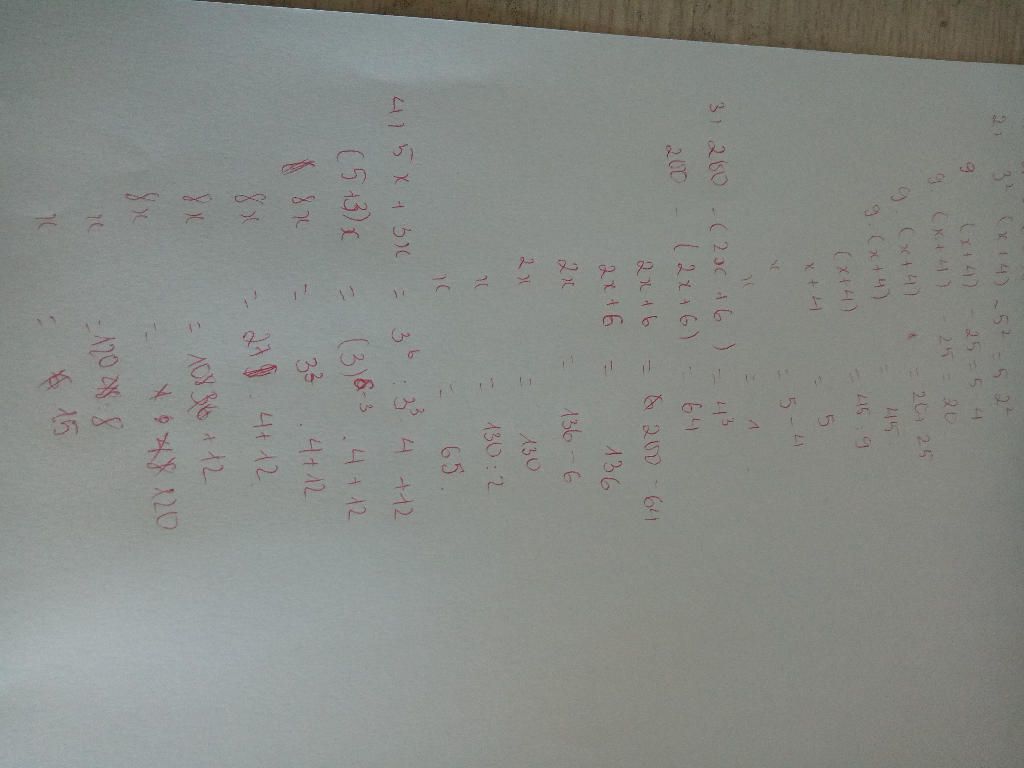 2, 3² (x+4) - 5² = 5 . 2²
9 (x+4) - 25 = 5 . 4
9 (x+4) - 25 = 20
9. (x+4) = 20+25
9. (x+4) = 45
(x+4) = 45 : 9
x+4 = 5
x = 5 - 4
x = 1
3, 200 - (2x + 6) = 4³
200 - (2x+6) = 64
2x+6 = 200 - 64
2x+6 = 136
2x = 136 - 6
2x = 130
x = 130 : 2
x = 65.
4, 5x + 3x = 3⁶ : 3³ . 4 + 12
(5+3)x = (3)⁶⁻³ . 4 + 12
8x = 3³ . 4 + 12
8x = 27 . 4 + 12
8x = 108 + 12
8x = 120
x = 120 : 8
x = 15